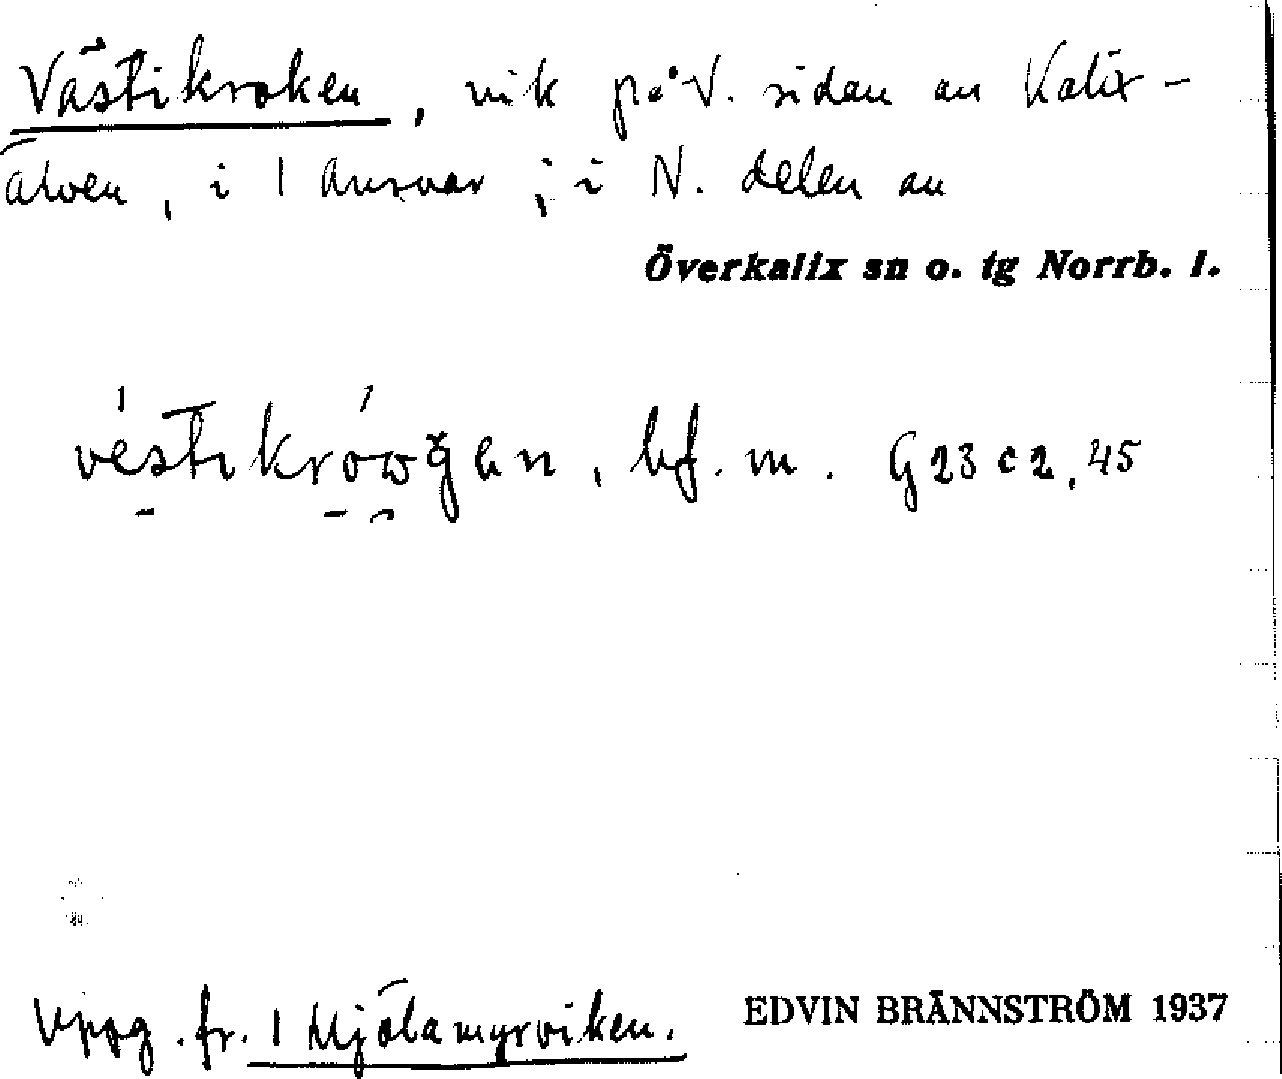 Västikroken, vik på V. sidan av Kalix-
älven, i 1 Ansvar; i N. delen av
Överkalix sn o. tg Norrb. l.
véstıkrówğan, bf. m. G23 c2, 45
Uppg. fr. 1 Mjölamyrviken.
EDVIN BRÄNNSTRÖM 1937